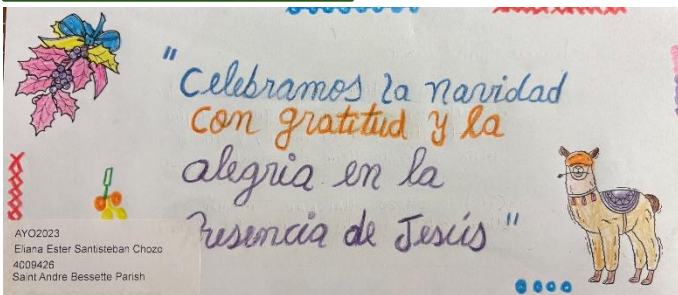 "Celebramos la navidad
con gratitud y la
alegria en la
Presencia de Jesús"
AYO2023
Eliana Ester Santisteban Chozo
4009426
Saint Andre Bessette Parish